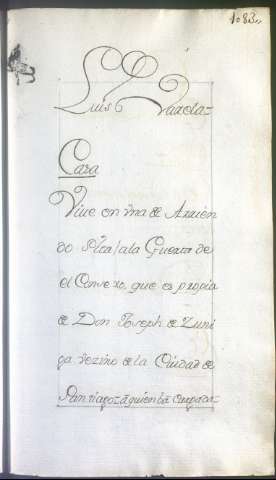 1083,,
Luis Varela=
Casa
Vive en vna de Arrien
do sita / a la Guerta de
el Consexo, que es propia
de Don Joseph de Zuñi
ga vezino de la Ciudad de
Santiago: a quien ha